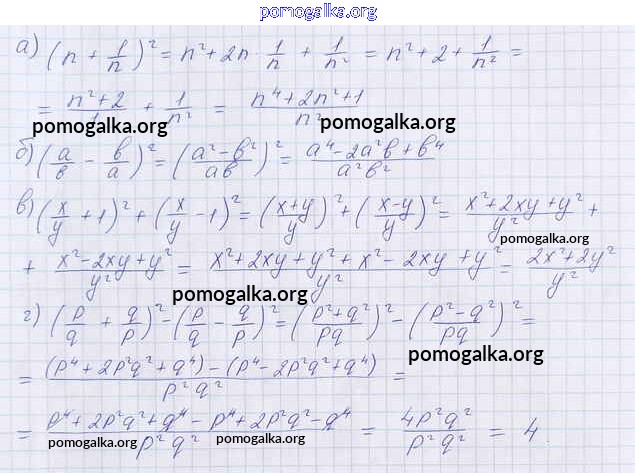 pomogalka.org
а) (n + 1/n)² = n² + 2n · 1/n + 1/n² = n² + 2 + 1/n² =
= n²+2/1 + 1/n² = n⁴+2n²+1/n²
pomogalka.org pomogalka.org
б) (a/b - b/a)² = (a²-b²/ab)² = a⁴-2a²b+b⁴/a²b²
в) (x/y + 1)² + (x/y - 1)² = (x+y/y)² + (x-y/y)² = x²+2xy+y²/y² +
pomogalka.org
+ x²-2xy+y²/y² = x²+2xy+y²+x²-2xy+y²/y² = 2x²+2y²/y²
pomogalka.org
г) (p/q + q/p)² - (p/q - q/p)² = (p²+q²/pq)² - (p²-q²/pq)² =
pomogalka.org
= (p⁴+2p²q²+q⁴)-(p⁴-2p²q²+q⁴)/p²q² =
= p⁴+2p²q²+q⁴-p⁴+2p²q²-q⁴/p²q² = 4p²q²/p²q² = 4.
pomogalka.org pomogalka.org